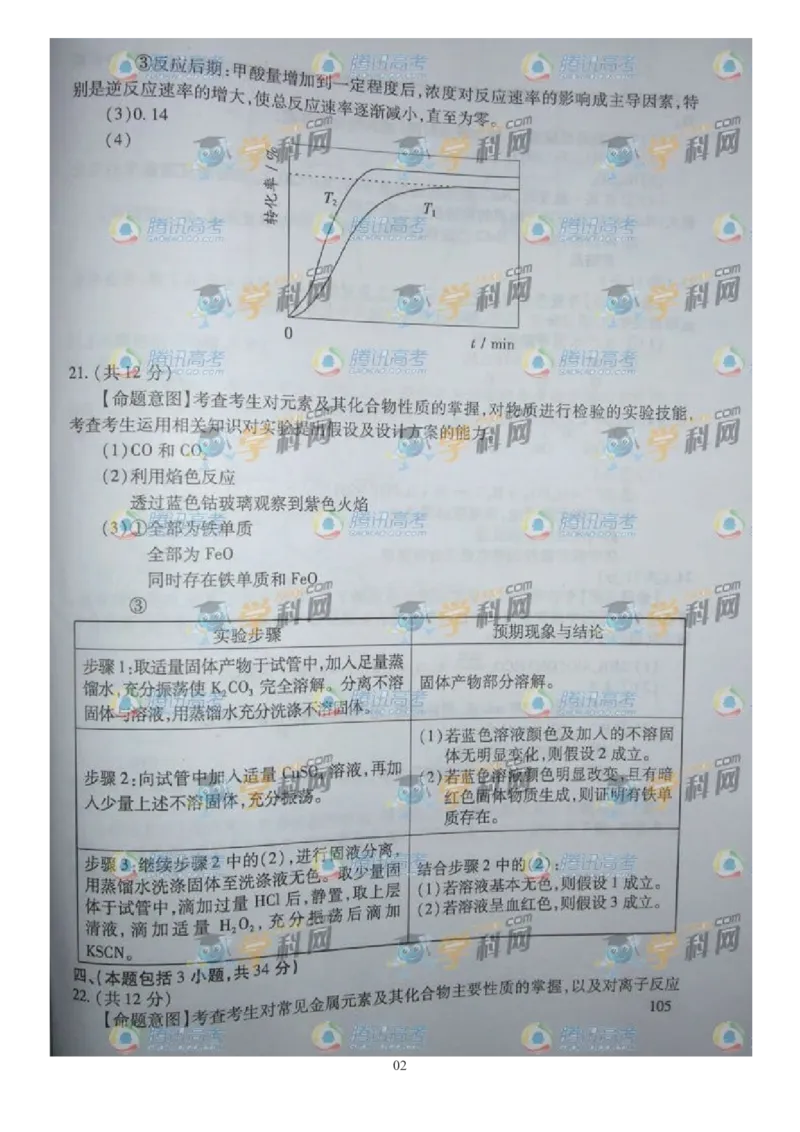 ③反应后期:甲酸量增加到一定程度后,浓度对反应速率的影响成主导因素,特
别是逆反应速率的增大,使总反应速率逐渐减小,直至为零。
(3)0.14
(4)
转化率/%
T₂
T₁
0
t / min
21.(共12分)
【命题意图】考查考生对元素及其化合物性质的掌握,对物质进行检验的实验技能,
考查考生运用相关知识对实验提出假设及设计方案的能力。
(1)CO 和 CO₂
(2)利用焰色反应
透过蓝色钴玻璃观察到紫色火焰
(3)①全部为铁单质
全部为 FeO
同时存在铁单质和 FeO
③
实验步骤 预期现象与结论
步骤1:取适量固体产物于试管中,加入足量蒸
馏水,充分振荡使 K₂CO₃ 完全溶解。分离不溶
固体与溶液,用蒸馏水充分洗涤不溶固体。
固体产物部分溶解。
步骤2:向试管中加入适量 CuSO₄ 溶液,再加
入少量上述不溶固体,充分振荡。
(1)若蓝色溶液颜色及加入的不溶固
体无明显变化,则假设2成立。
(2)若蓝色溶液颜色明显改变,且有暗
红色固体物质生成,则证明有铁单
质存在。
步骤3:继续步骤2中的(2),进行固液分离,
用蒸馏水洗涤固体至洗涤液无色。取少量固
体于试管中,滴加过量 HCl 后,静置,取上层
清液,滴加适量 H₂O₂,充分振荡后滴加
KSCN。
结合步骤2中的(2):
(1)若溶液基本无色,则假设1成立。
(2)若溶液呈血红色,则假设3成立。
四、(本题包括3小题,共34分)
22.(共12分)
【命题意图】考查考生对常见金属元素及其化合物主要性质的掌握,以及对离子反应
105
02